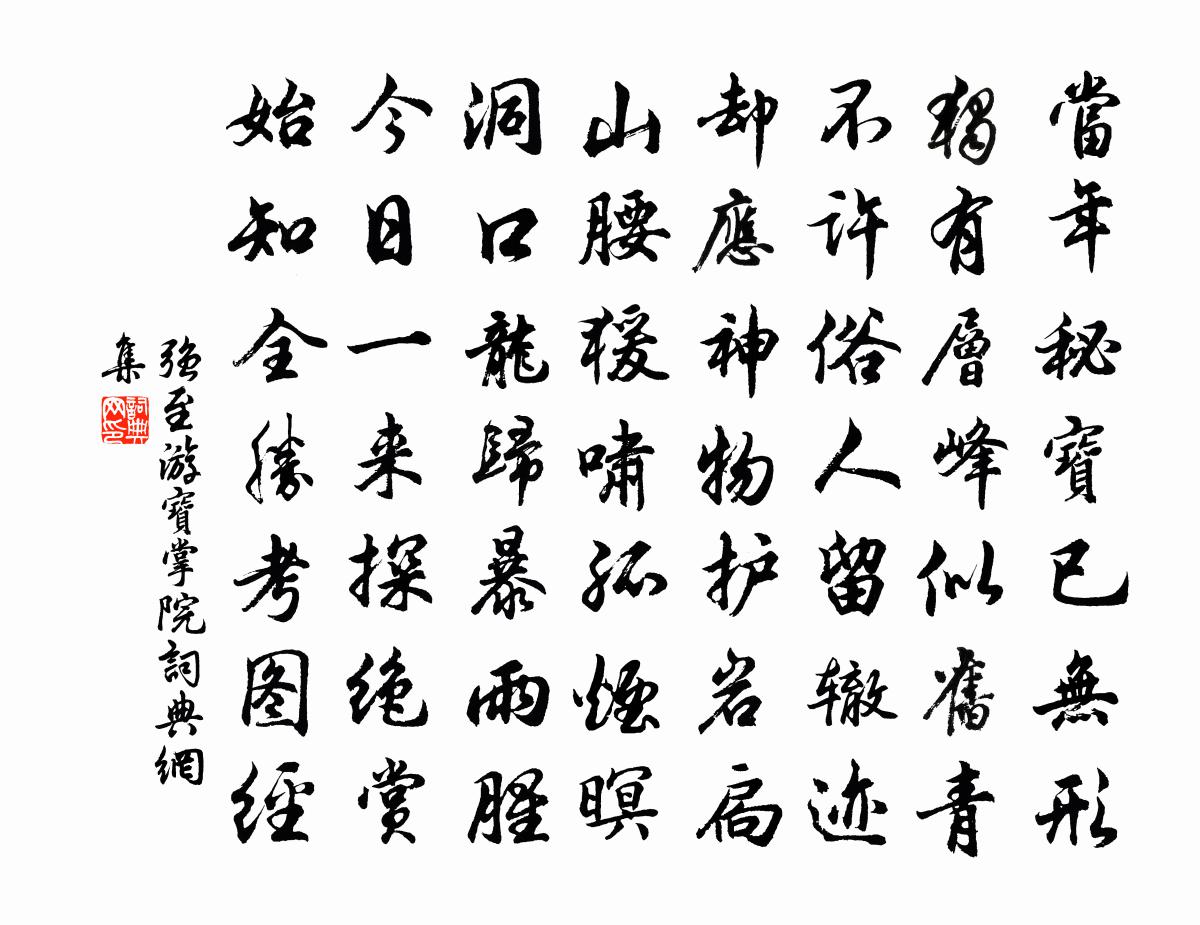 當年秘寶已無形
獨有層峰似舊青
不許俗人留辙迹
却應神物护岩扃
山腰猨嘯孤煙暝
洞口龍歸暴雨腥
今日一来探絶赏
始知全勝考图經
強至游寶掌院詞典網
集
詞典网印